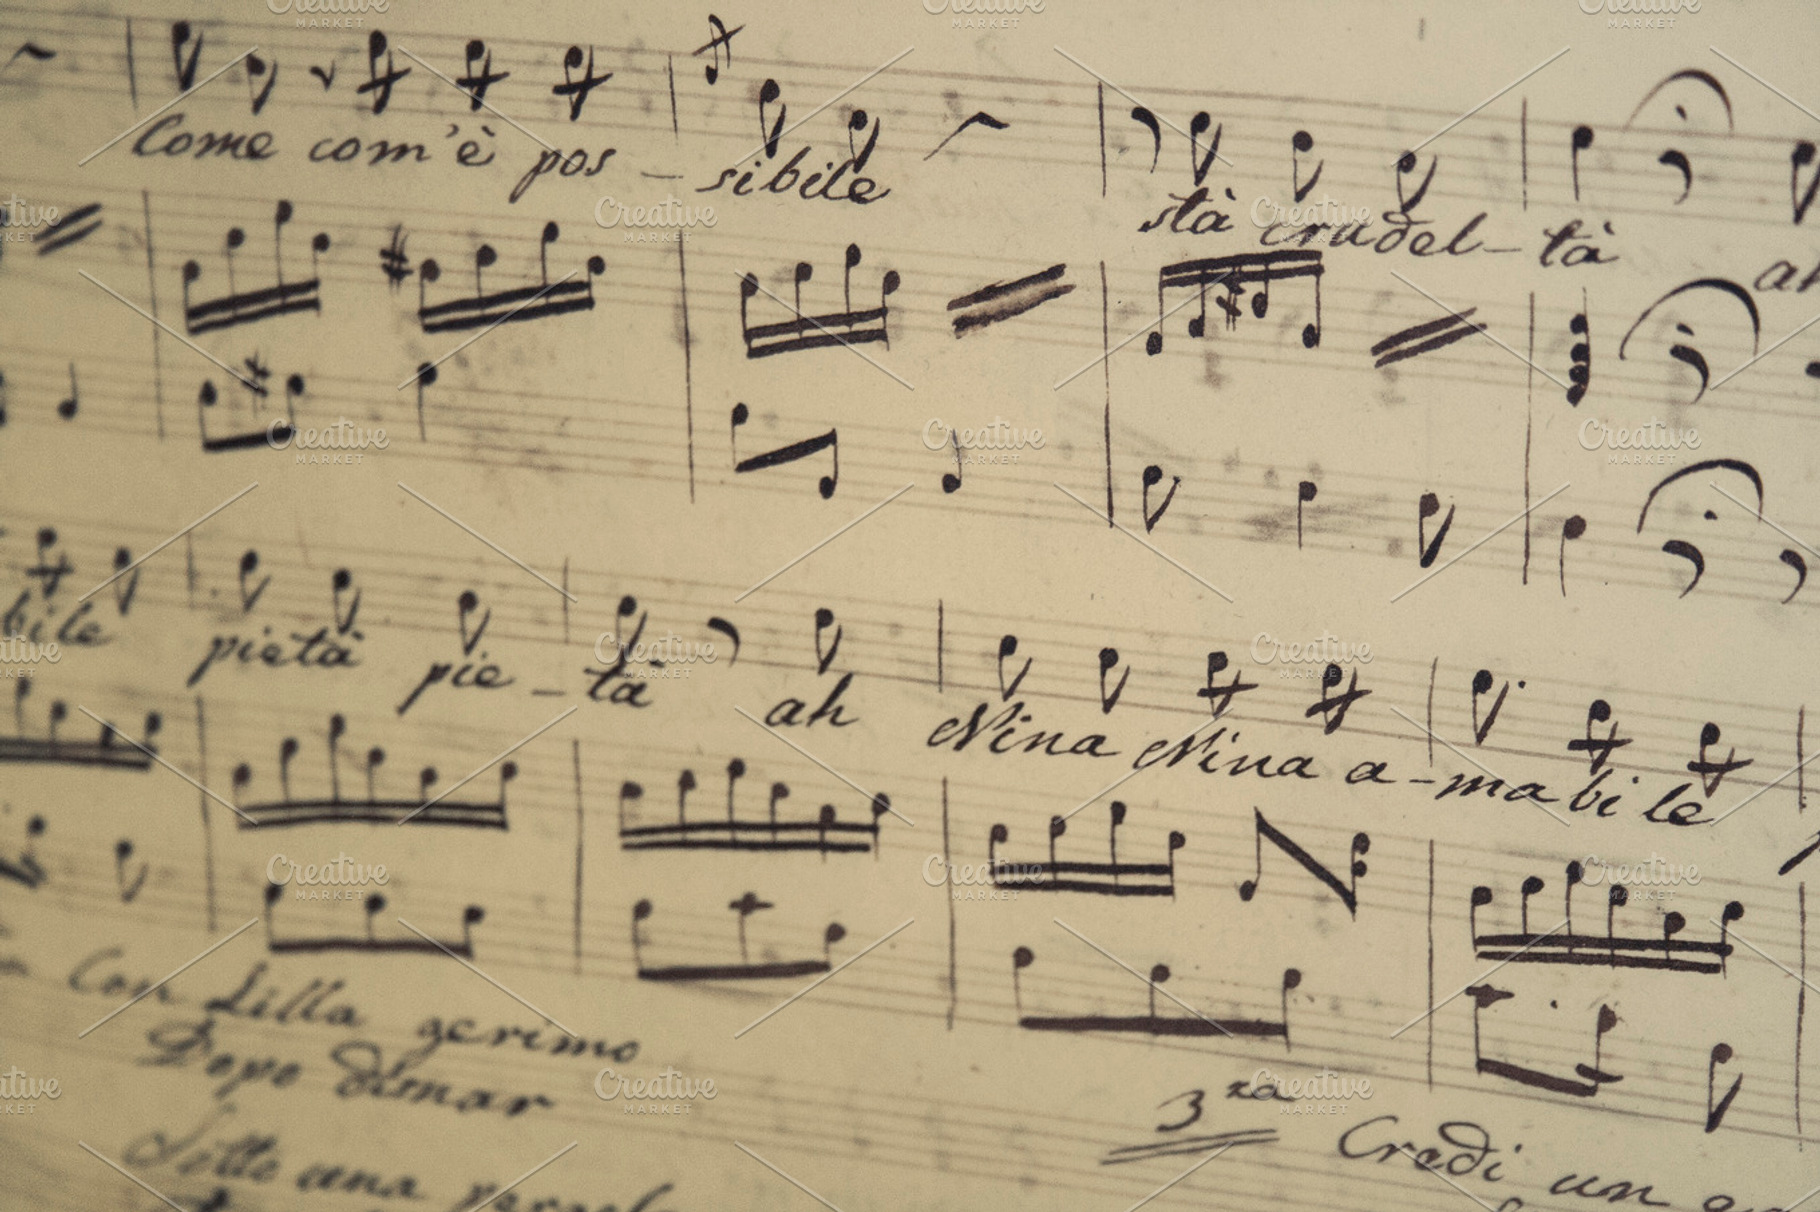 Come com'è pos - sibile stà crudel - tà ah
bile pietà pie - tà ah Nina Nina a - mabile
Con Lilla gerimo
Dopo dimar
3.za Credi un
Sotto una